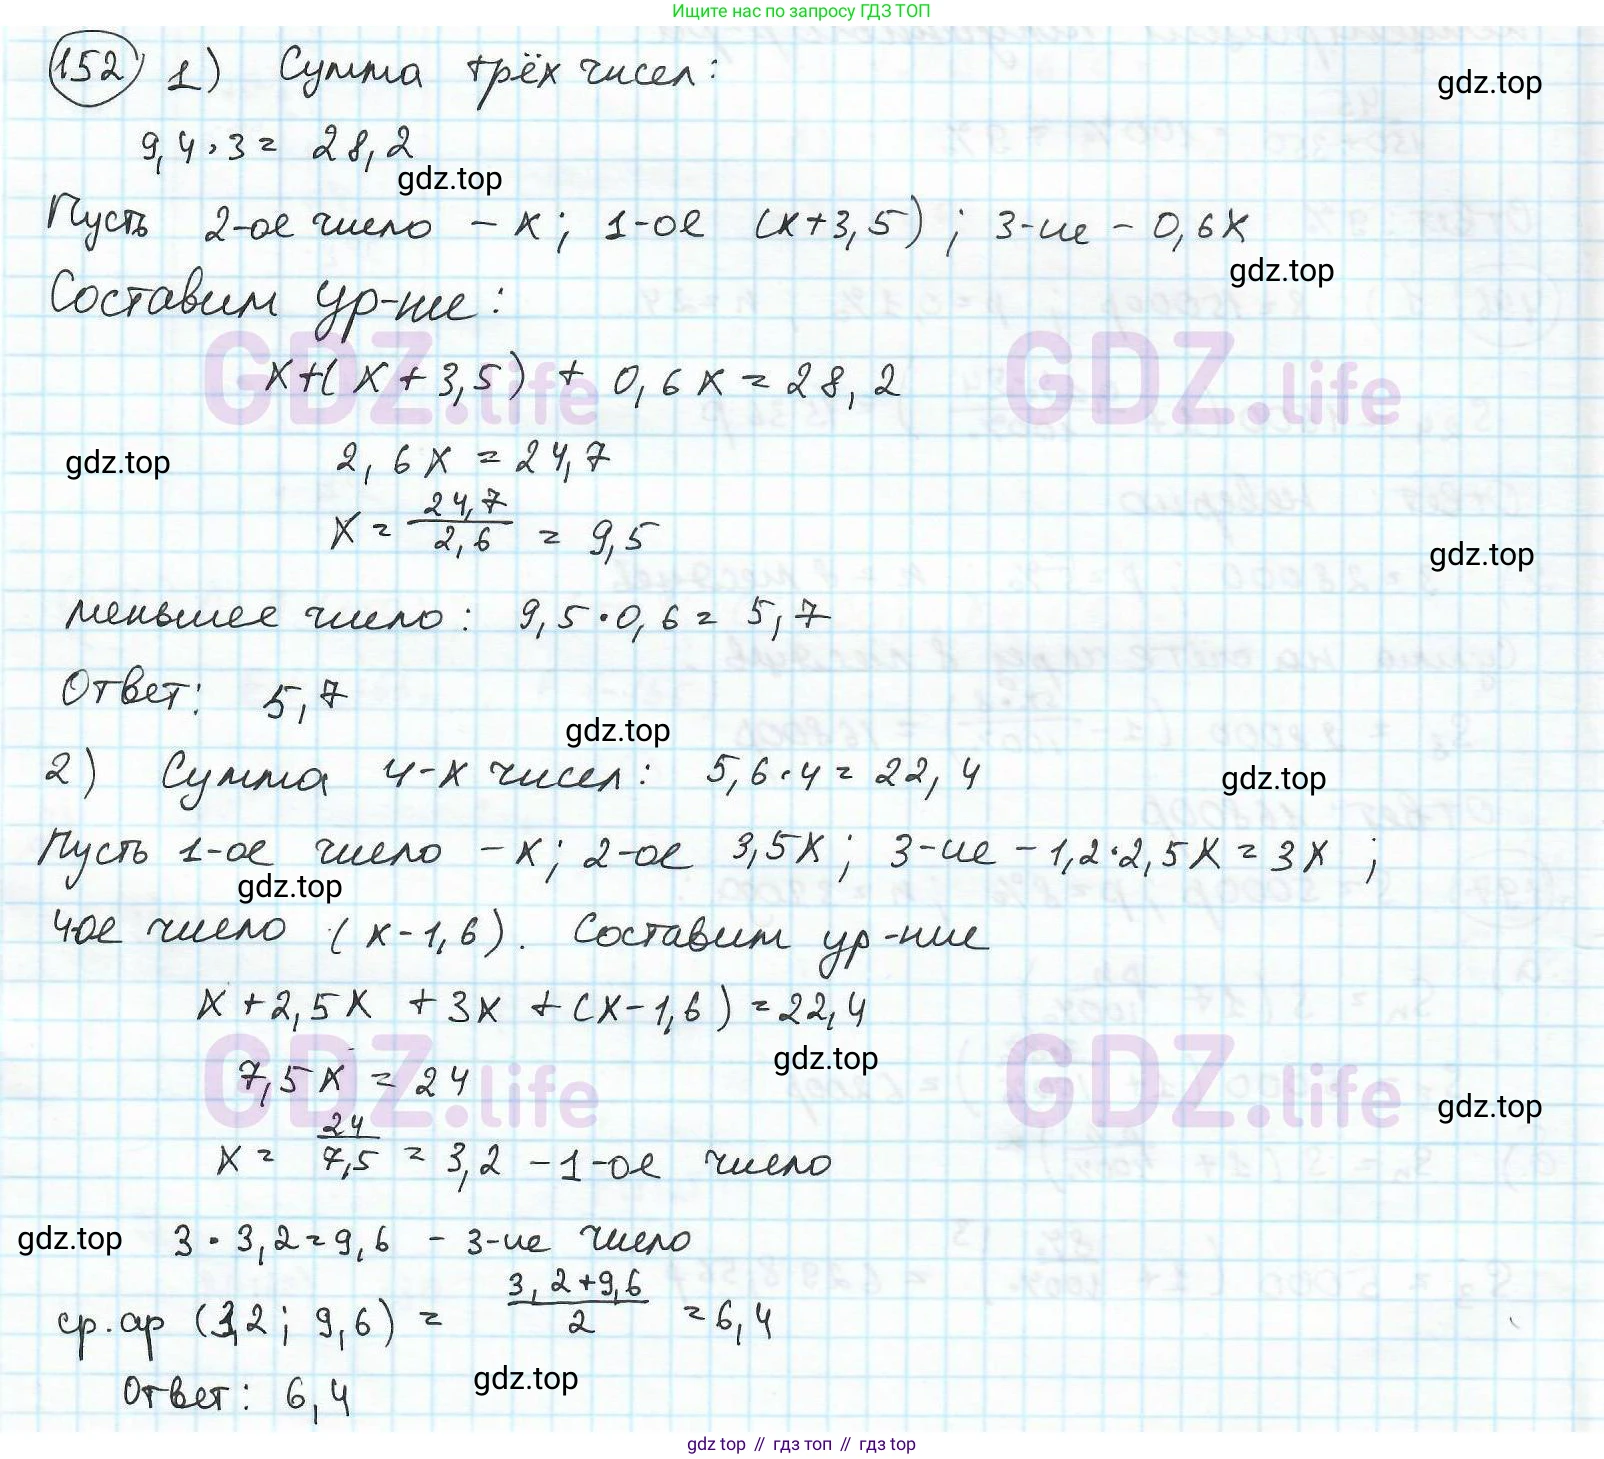 Ищите нас по запросу ГДЗ ТОП
152 1) Сумма трёх чисел:
gdz.top
9,4·3= 28,2
gdz.top
Пусть 2-ое число – x; 1-ое (x+3,5); 3-ие – 0,6x
gdz.top
Составим ур-ние:
GDZ.life GDZ.life
x+(x+3,5) + 0,6x = 28,2
gdz.top
2,6x = 24,7
x = 24,7/2,6 = 9,5
gdz.top
меньшее число: 9,5·0,6= 5,7
Ответ: 5,7
gdz.top
2) Сумма 4-х чисел: 5,6·4=22,4
gdz.top
Пусть 1-ое число – x; 2-ое 3,5x; 3-ие – 1,2·2,5x = 3x;
gdz.top
4ое число (x-1,6). Составим ур-ние
x+2,5x +3x +(x-1,6) =22,4
GDZ.life GDZ.life
gdz.top
7,5x = 24
gdz.top
x = 24/7,5 = 3,2 – 1-ое число
gdz.top
3·3,2=9,6 – 3-ие число
ср.ар (3,2; 9,6) = 3,2+9,6/2 =6,4
gdz.top
Ответ: 6,4
gdz top // гдз топ // gdz top